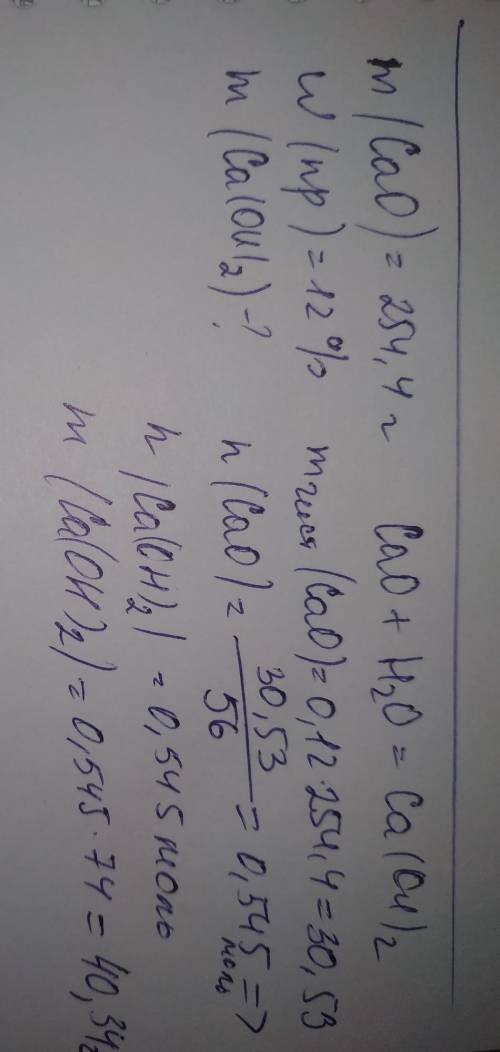 m(CaO) = 254,4 г CaO + H₂O = Ca(OH)₂
W(пр) = 12 % mчист(CaO) = 0,12·254,4 = 30,53
m(Ca(OH)₂) - ? n(CaO) = 30,53/56 = 0,545 моль =>
n(Ca(OH)₂) = 0,545 моль
m(Ca(OH)₂) = 0,545·74 = 40,34г